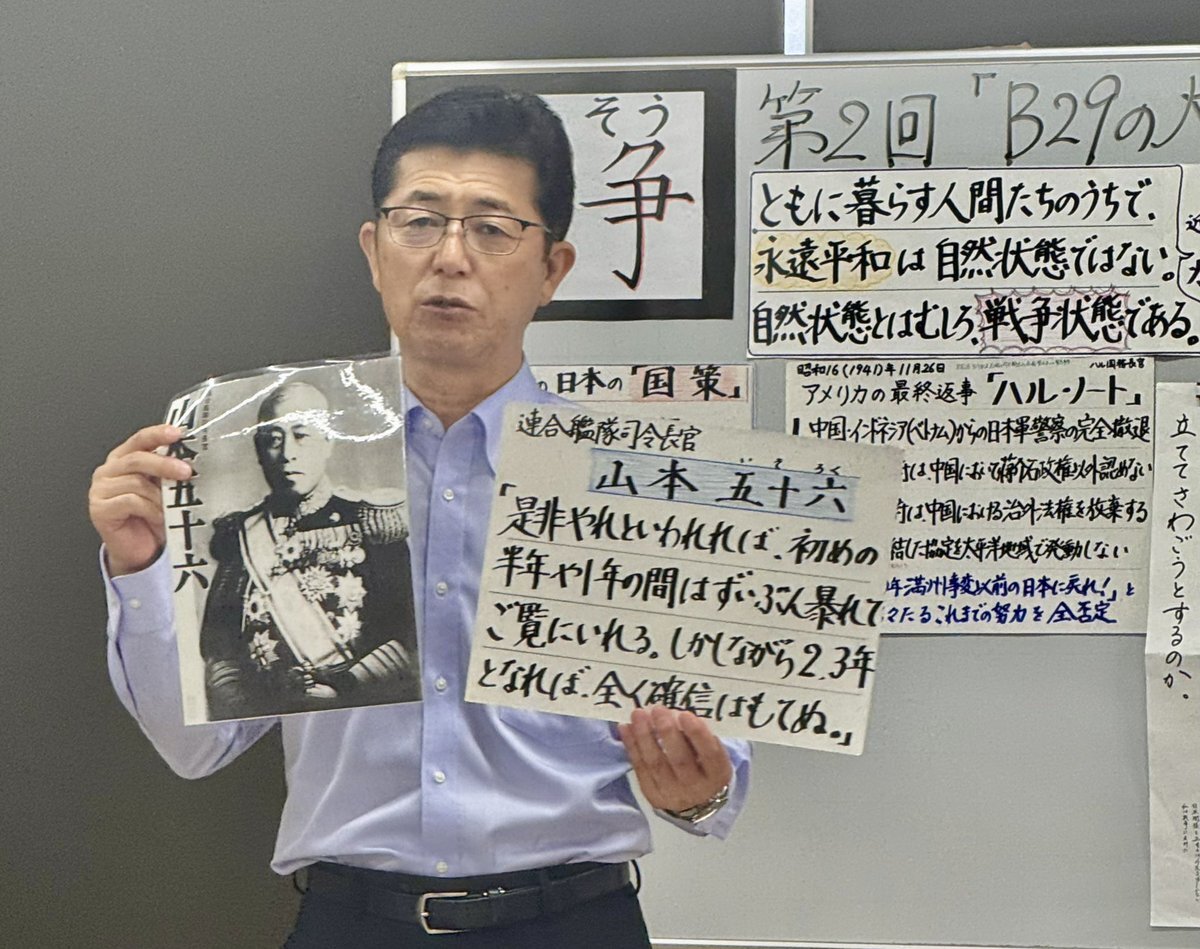 そう
争
第2回「B29の
ともに暮らす人間たちのうちで、
永遠平和は自然状態ではない。
自然状態とはむしろ、戦争状態である。
日本の「国策」
昭和16(1941)年11月26日
ハル国務長官
アメリカの最終返事「ハル・ノート」
中国・インドネシア(ベトナム)からの日本軍警察の完全撤退
は、中国において蔣介石政権以外認めない
は、中国における治外法権を放棄する
結した協定を太平洋地域で発動しない
満州事変以前の日本に戻れ!」と
たる、これまでの努力を全否定
立ててさわごうとするのか。
山本五十六
連合艦隊司令長官
いそろく
山本 五十六
「是非やれといわれれば、初めの
半年や1年の間はずいぶん暴れて
ご覧にいれる。しかしながら2.3年
となれば、全く確信はもてぬ。」